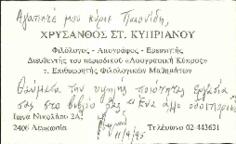 Αγαπητέ μου κύριε Πιερίδη,
ΧΡΥΣΑΝΘΟΣ ΣΤ. ΚΥΠΡΙΑΝΟΥ
Φιλόλογος - Λαογράφος - Ερευνητής
Διευθυντής του περιοδικού «Λαογραφική Κύπρος»
τ. Επιθεωρητής Φιλολογικών Μαθημάτων
Θαύμασα την υψηλής ποιότητας εργασία
σας στο βιβλίο σας « Ένα άλμα
Ίωνα Νικολάου 2Α,
2406 Λευκωσία
11/9/95
Τηλέφωνο 02 443631